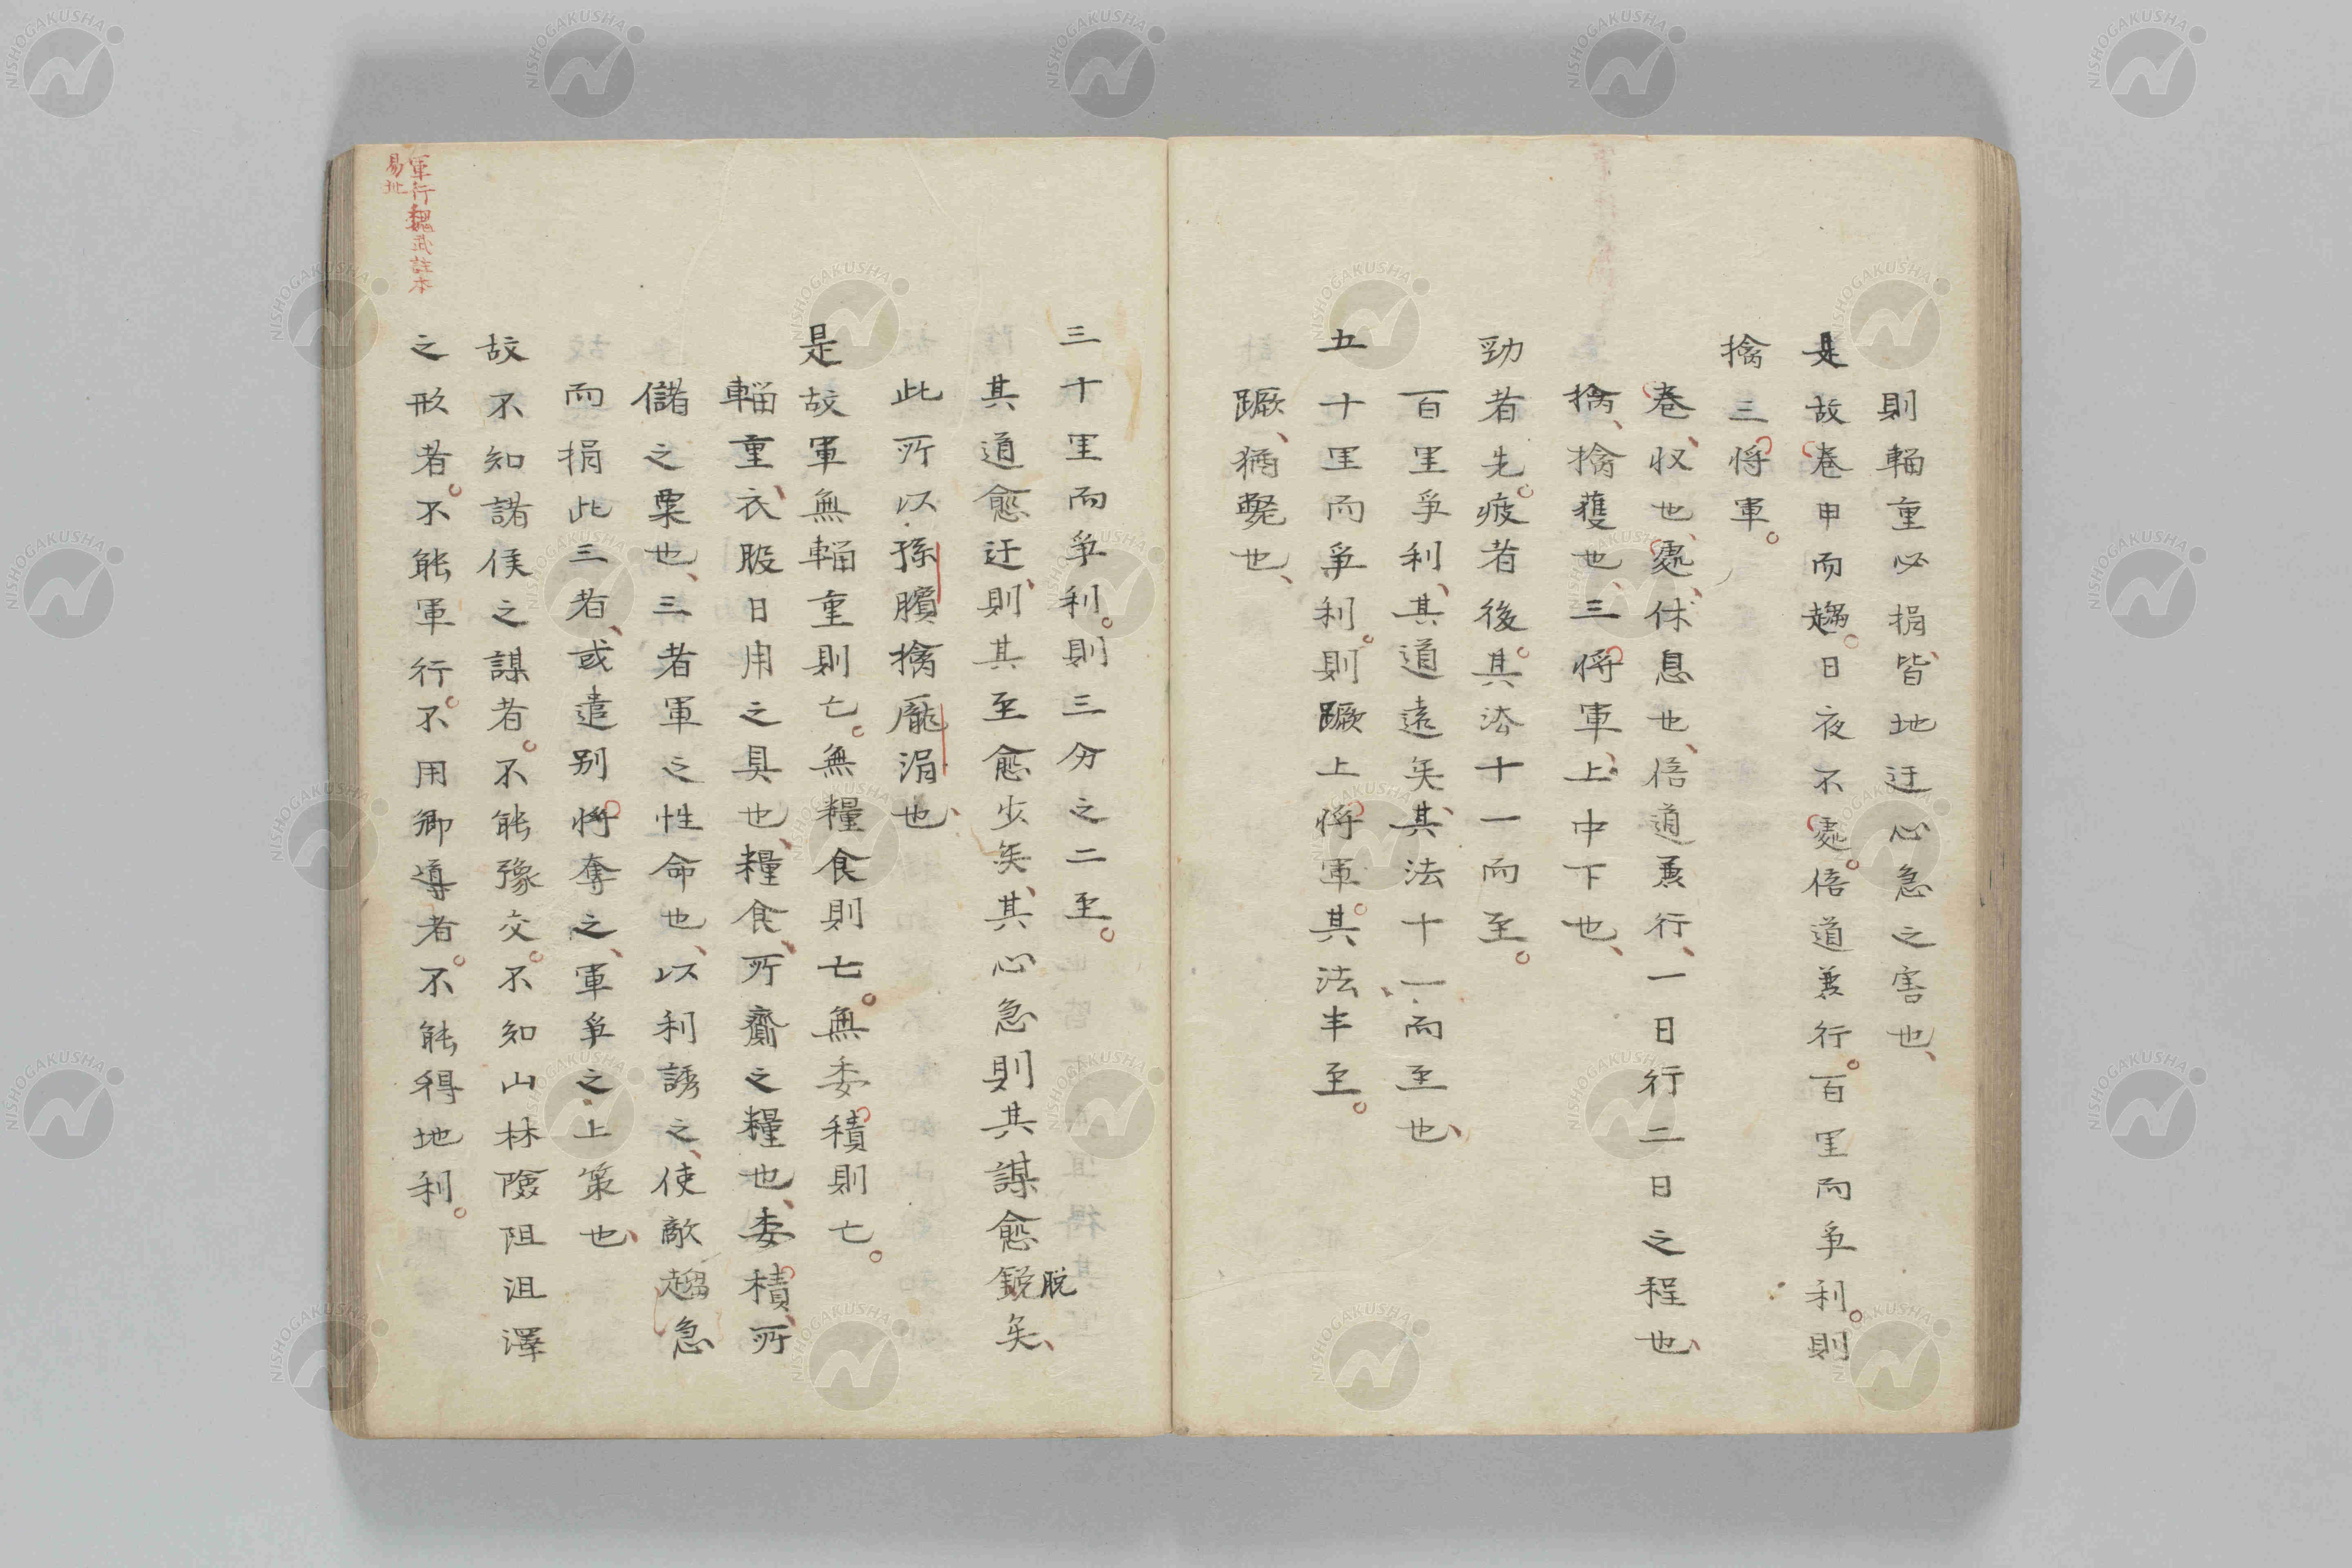 則輜重必捐、皆地迂心急之害也、
是故卷甲而趨。日夜不處。倍道兼行。百里而爭利。則
擒三將軍。
卷、收也、處、休息也、倍道兼行、一日行二日之程也、
擒、擒獲也、三將軍、上中下也、
勁者先。疲者後。其法十一而至。
百里爭利、其道遠矣、其法十一而至也、
五十里而爭利。則蹶上將軍。其法半至。
蹶、猶斃也、
三十里而爭利。則三分之二至。
其道愈迂、則其至愈少矣、其心急則其謀愈銳矣、
脱
此所以孫臏擒龐涓也、
是故軍無輜重則亡。無糧食則亡。無委積則亡。
輜重、衣股日用之具也、糧食、所齎之糧也、委積、所
儲之粟也、三者軍之性命也、以利誘之、使敵趨急
而捐此三者、或遣别將奪之、軍爭之上策也、
故不知諸侯之謀者。不能豫交。不知山林險阻沮澤
之形者。不能軍行。不用鄉導者。不能得地利。
軍行魏武註本
NISHOGAKUSHA